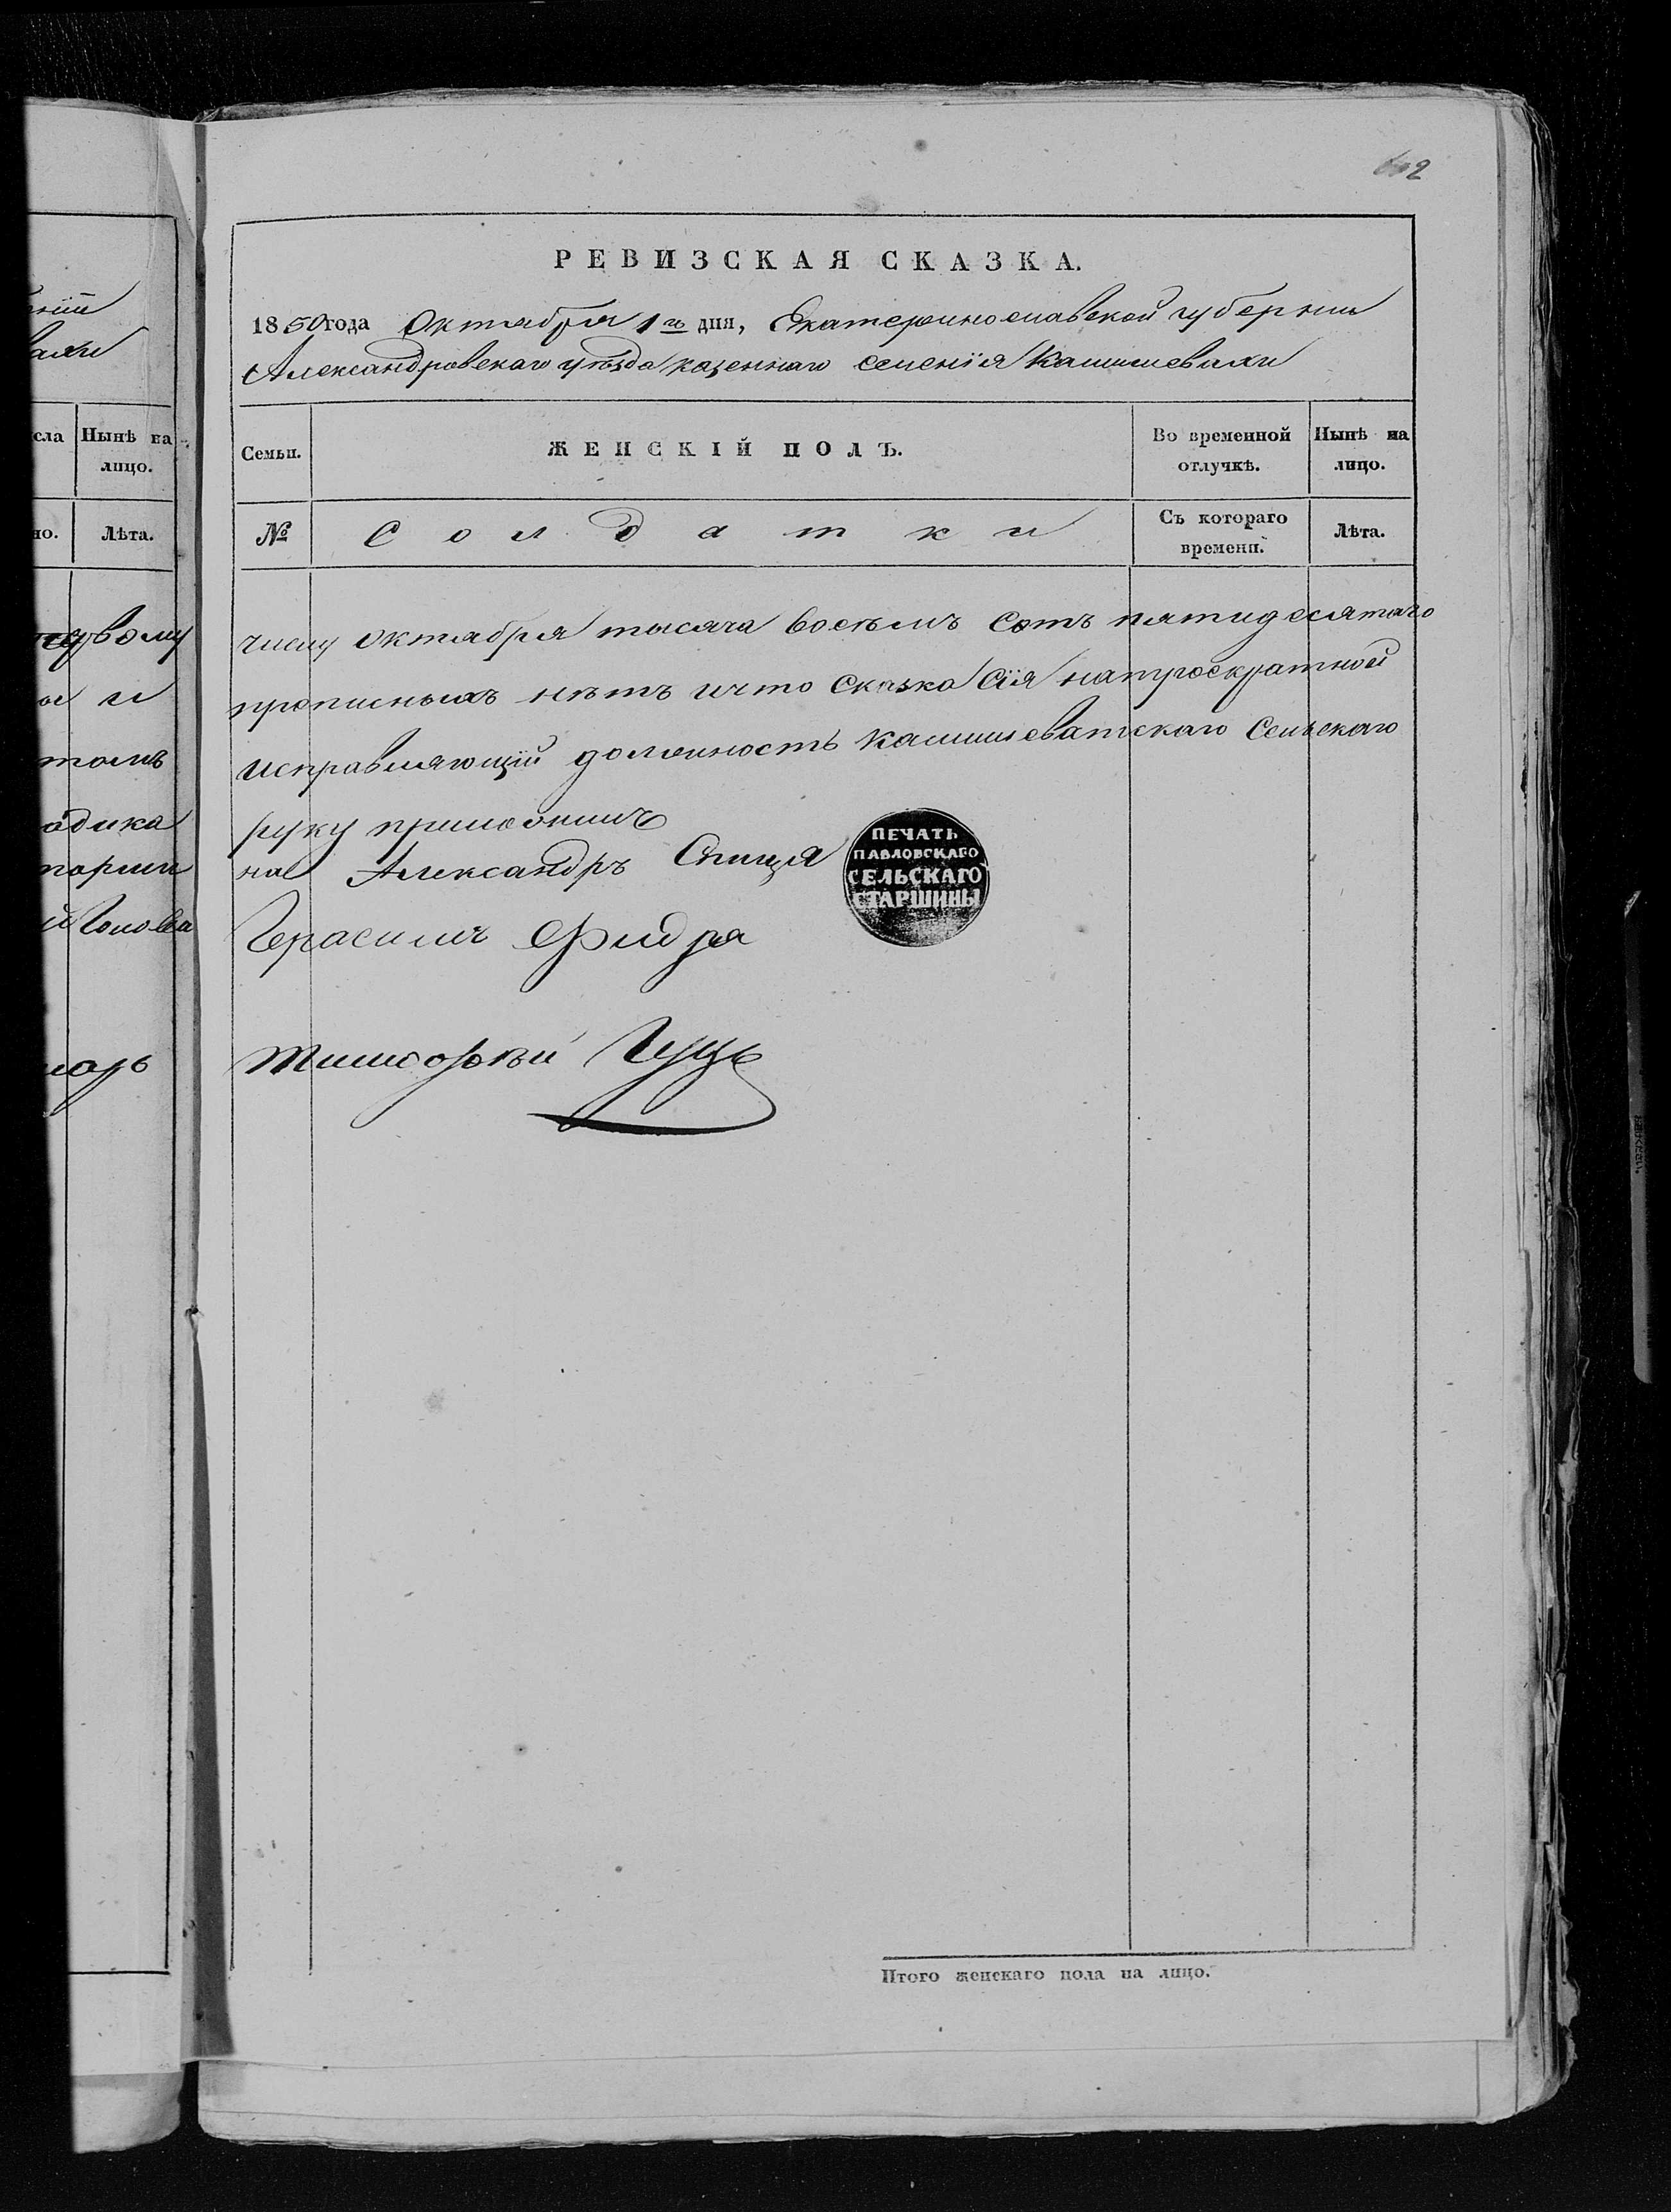 602
РЕВИЗСКАЯ СКАЗКА.
1850 года Октября 1го дня, Екатеринославской губернии
Александровскаго уѣзда казеннаго селенія Камышевахи
Семьи. ЖЕНСКІЙ ПОЛЪ. Во временной отлучкѣ. Нынѣ на лицо.
№ Солдатки Съ котораго времени. Лѣта.
числу октября тысяча восемъ сотъ пятидесятаго
прописныхъ нѣтъ и что сказка сія на троекратной
исправляющій должность Камышеватскаго Сельскаго
руку приложилъ
на Александръ Спиця
Герасимъ
Тимофей Гуць
ПЕЧАТЬ
ПАВЛОВСКАГО
СЕЛЬСКАГО
СТАРШИНЫ
Итого женскаго пола на лицо.
сла Нынѣ на лицо.
но. Лѣта.